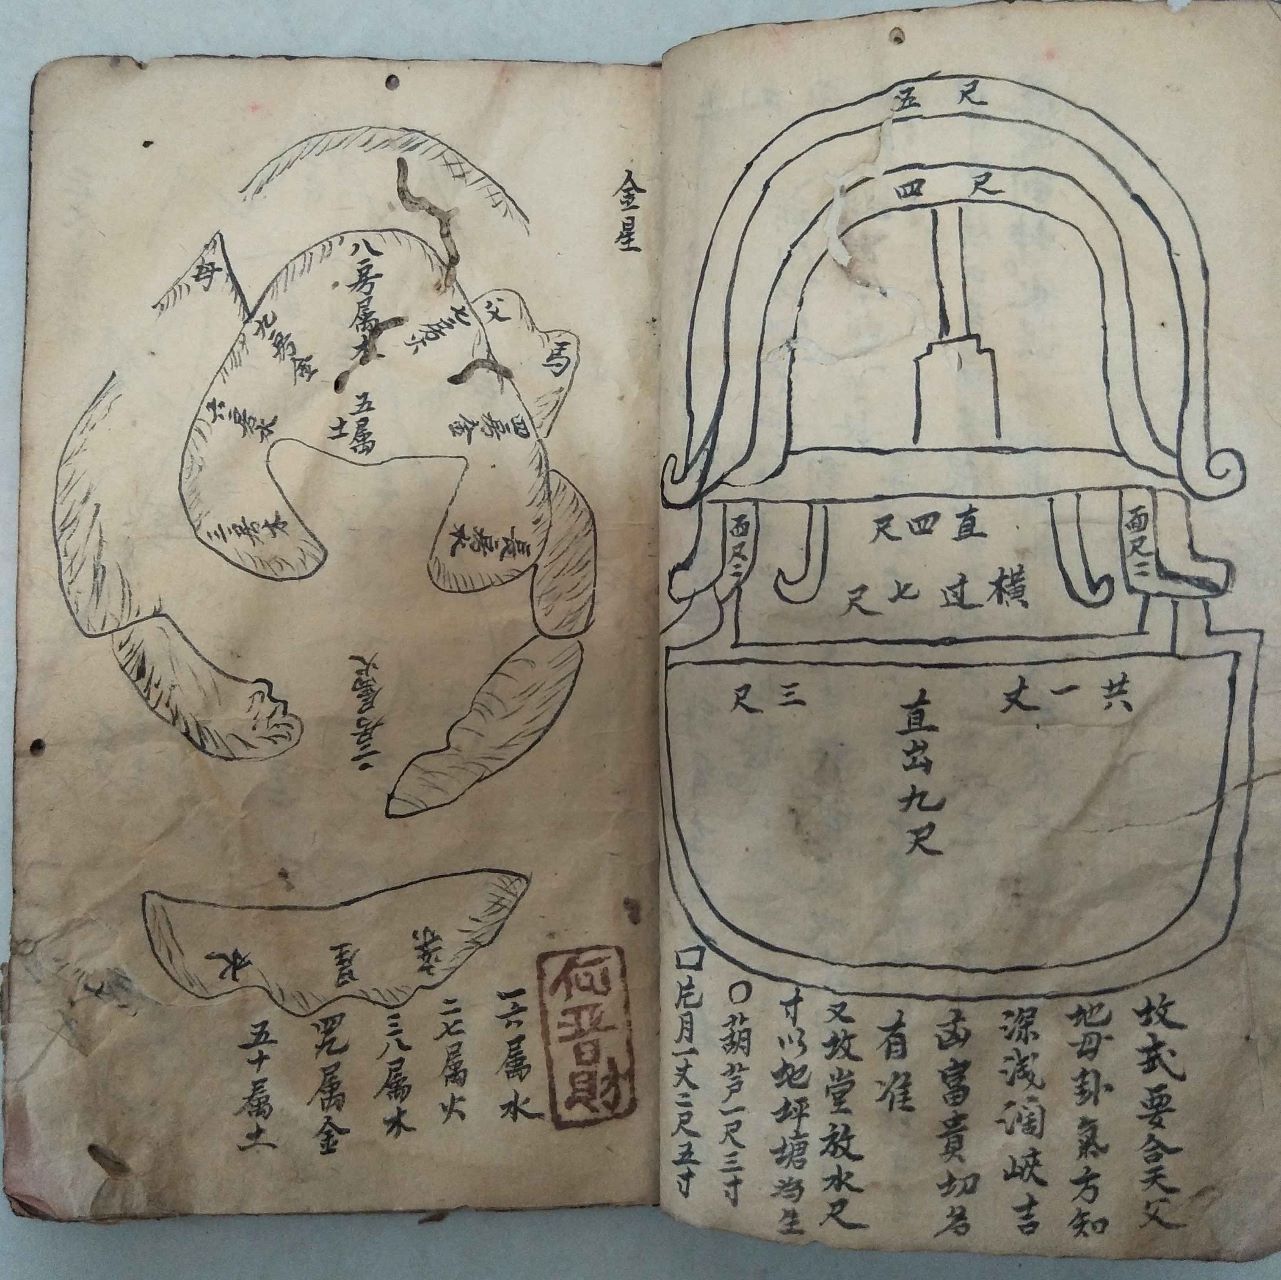 五尺
四尺
直四尺
橫过七尺
面尺二
面尺二
共一丈三尺
直出九尺
坟式要合天父
地母卦氣方知
深浅濶峽吉
凶富貴切名
有准
又坟堂放水尺
寸以地坪塘為生
○葫芦一尺三寸
口片月一丈二尺五寸
金星
母
父
馬
八房属木
七房火
九房金
四房金
六房水
五属土
三房木
長房水
二房属火
水
一六属水
二七属火
三八属木
四九属金
五十属土
何晋財